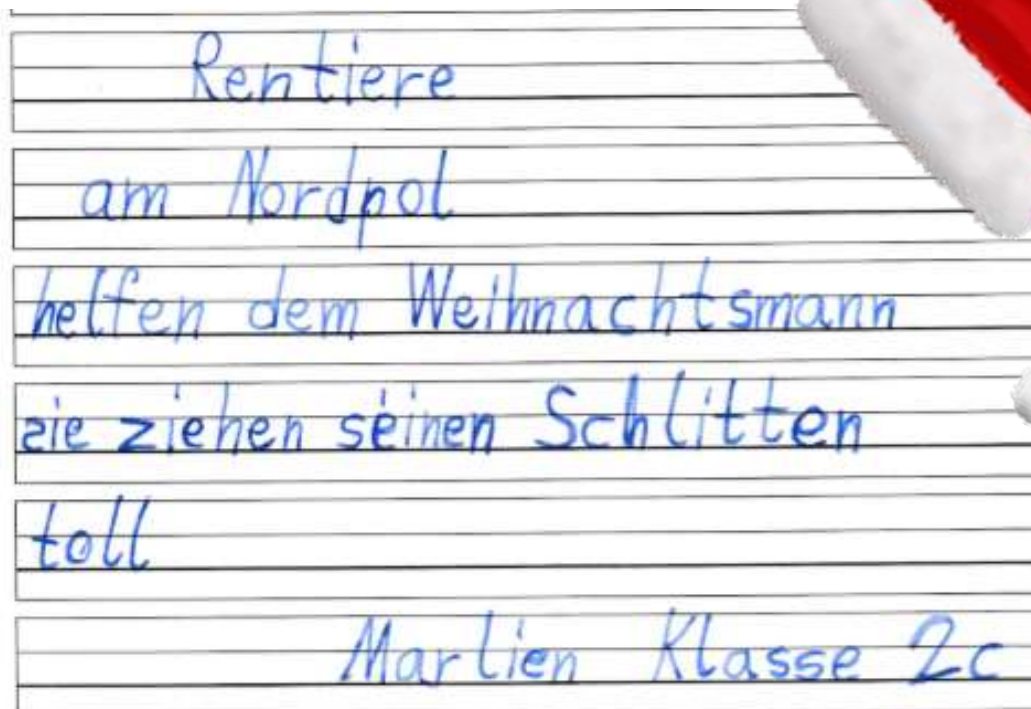 Rentiere
am Nordpol
helfen dem Weihnachtsmann
sie ziehen seinen Schlitten
toll
Marlien Klasse 2c